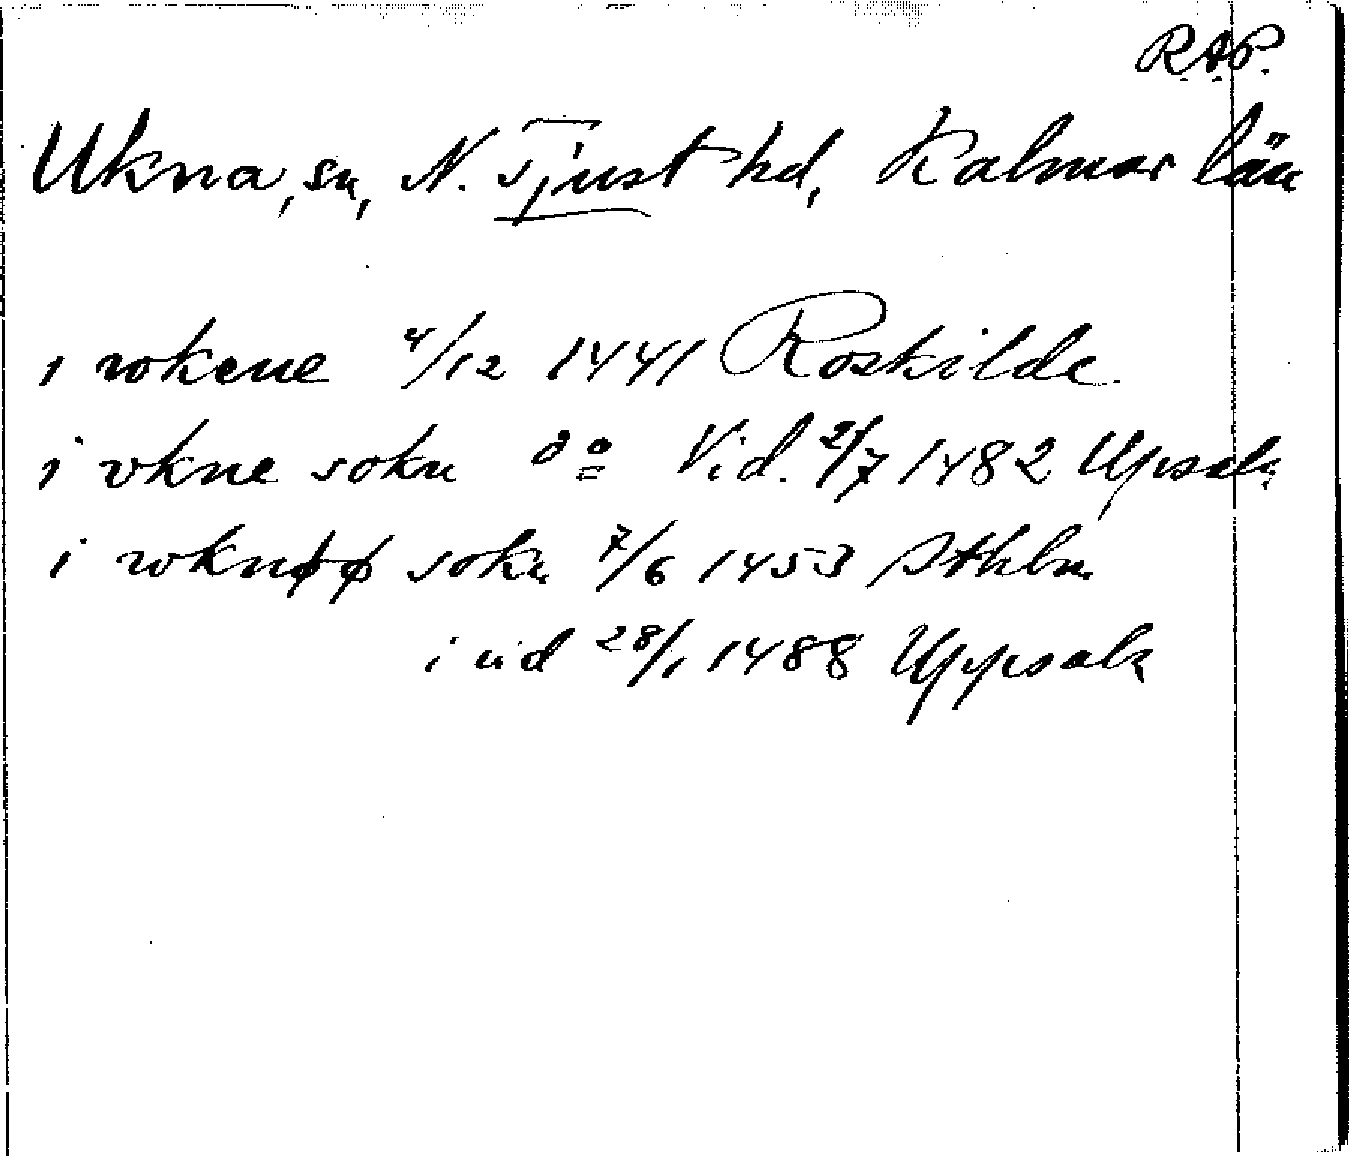 R.A.P.
Ukna, sn, N. Tjust hd, Kalmar län
i wkene 4/12 1441 Roskilde
i vkne sokn do Vid. 2/7 1482 Upsala
i wknøø sokn 7/6 1453 Sthlm
i vid 28/1 1488 Uppsala